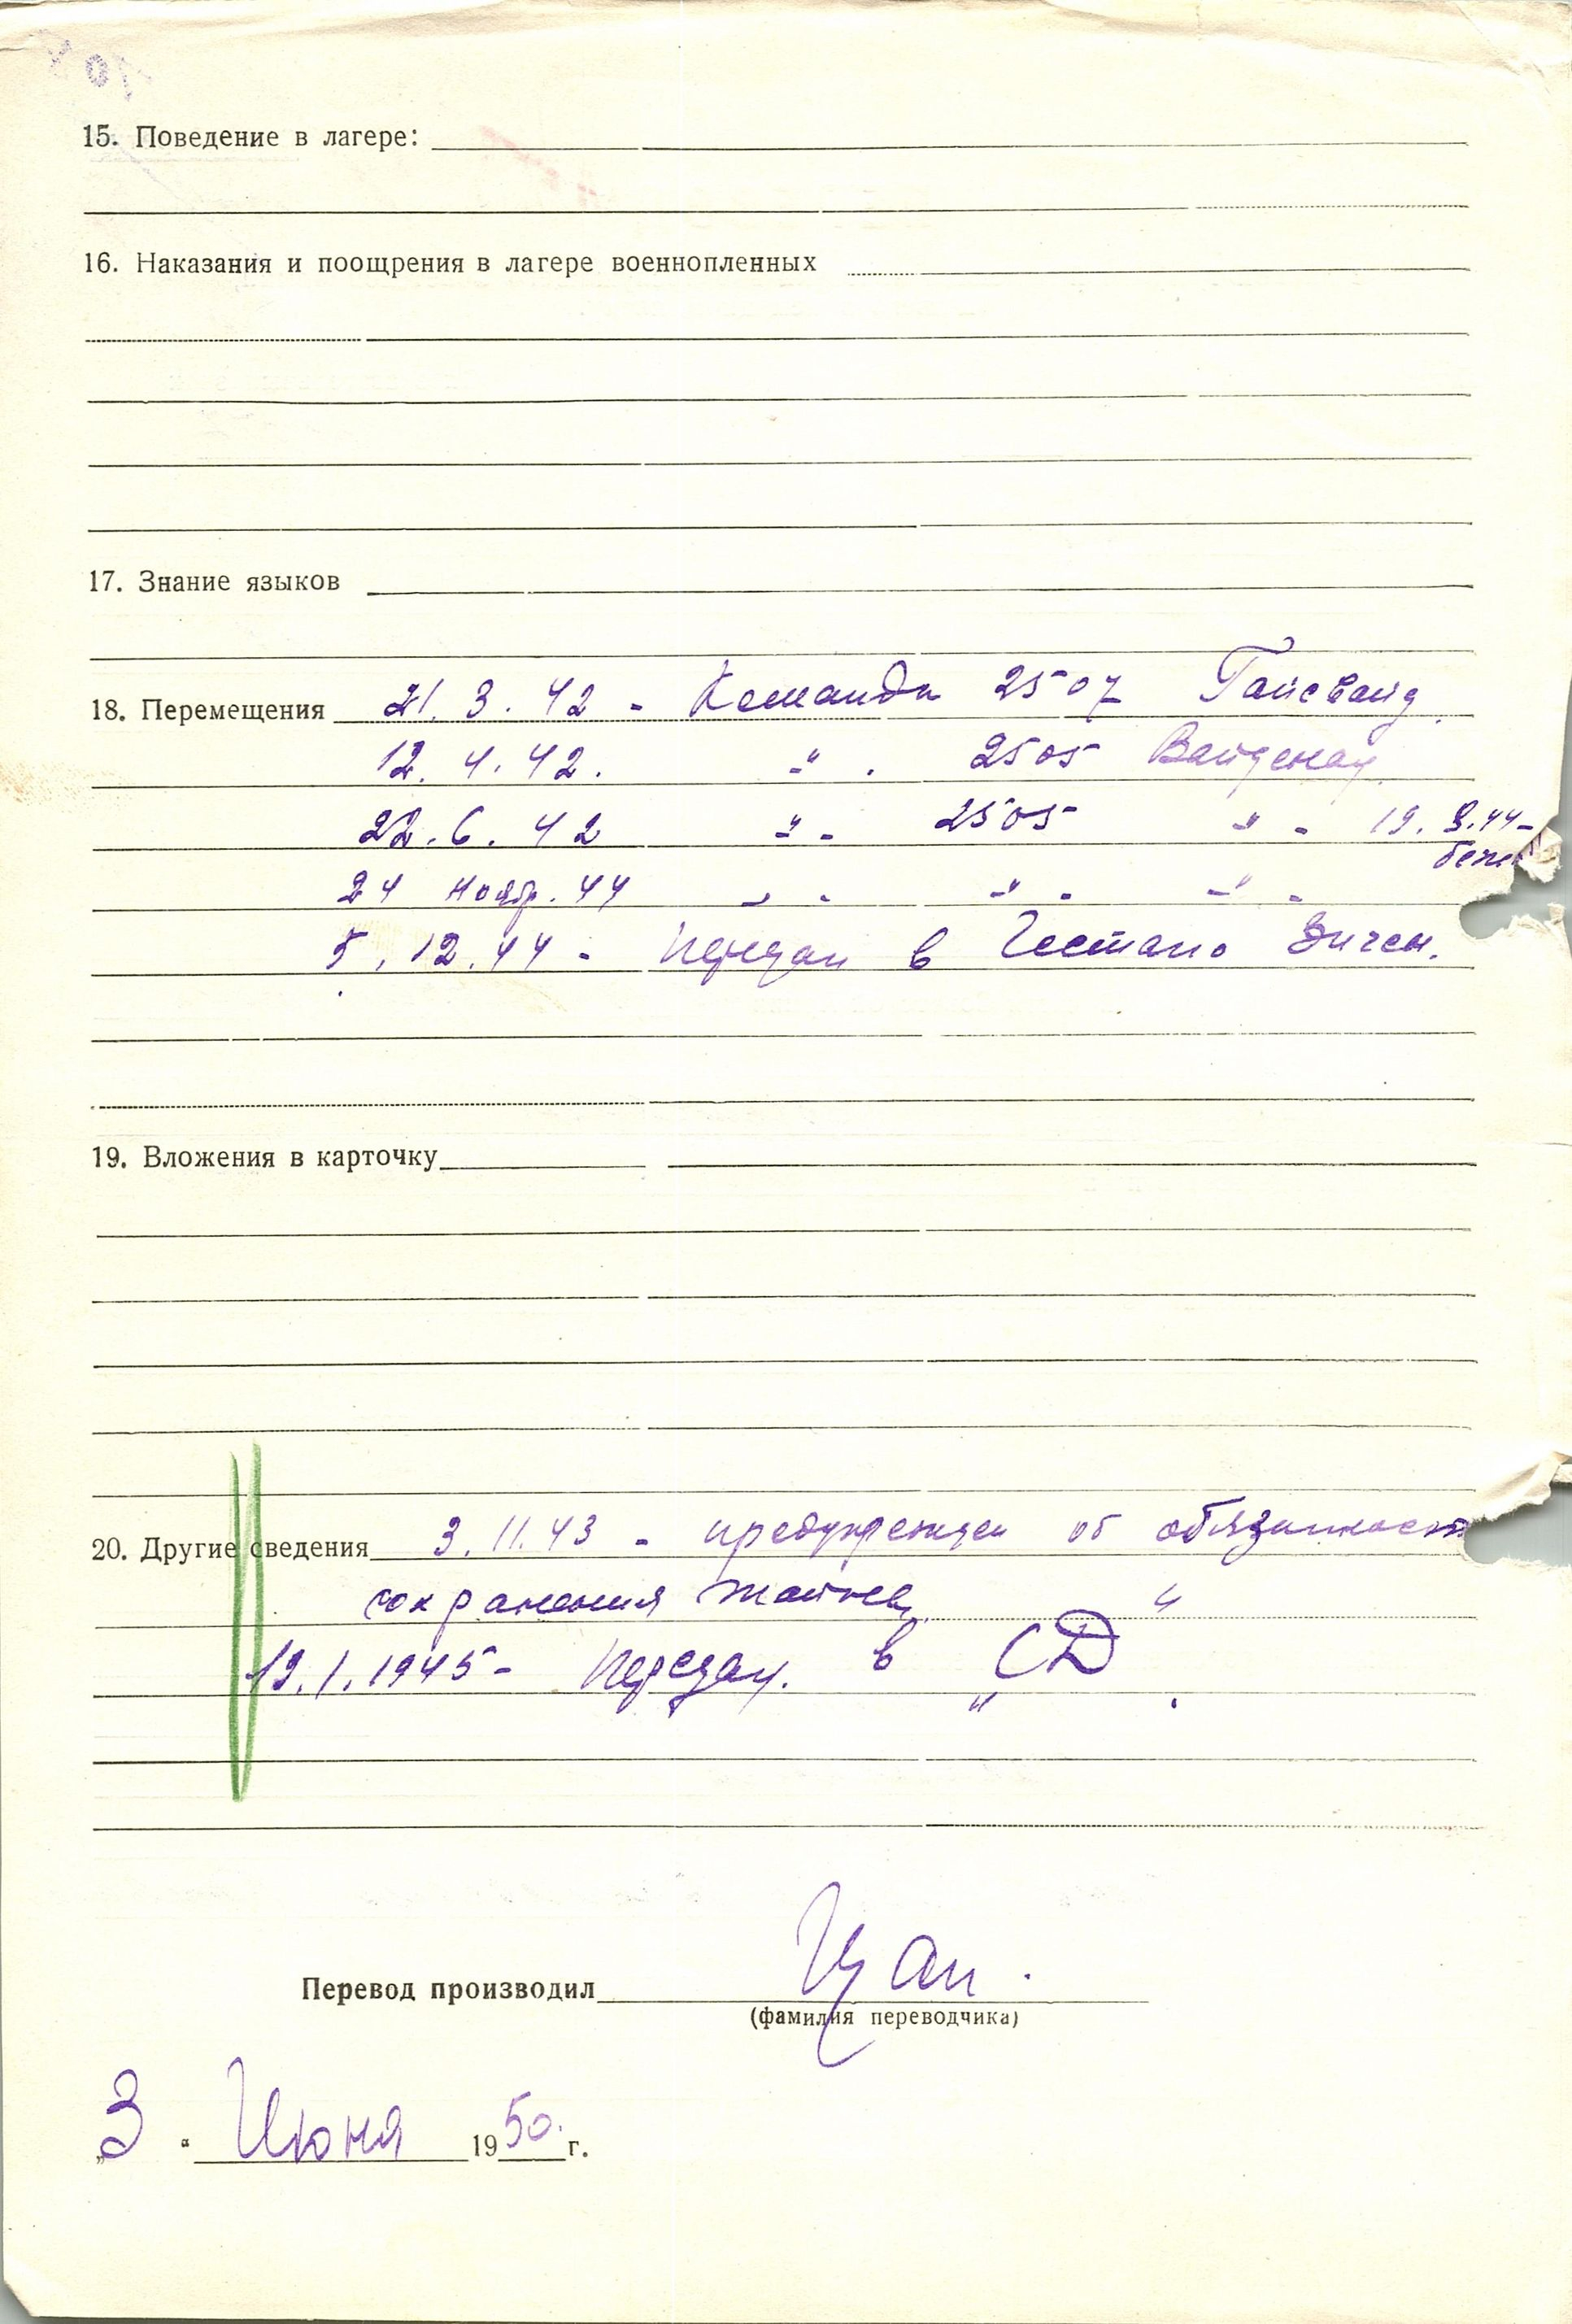 15. Поведение в лагере:
16. Наказания и поощрения в лагере военнопленных
17. Знание языков
18. Перемещения 21. 3. 42 - Команда 2507 Гайсвайд
12. 4. 42. -"- 2505 Вайденау
22. 6. 42 -"- 2505 -"- 19. 9.44-
бежал
24 Ноябр. 44 -"- -"- -"-
5. 12. 44 - Передан в Гестапо Зиген.
19. Вложения в карточку
20. Другие сведения 3. 11. 43 - предупрежден об обязанност
сохранения тайны
19. 1. 1945 - Передан. в „СД“.
Перевод производил Цан.
(фамилия переводчика)
„3“ Июня 1950. г.